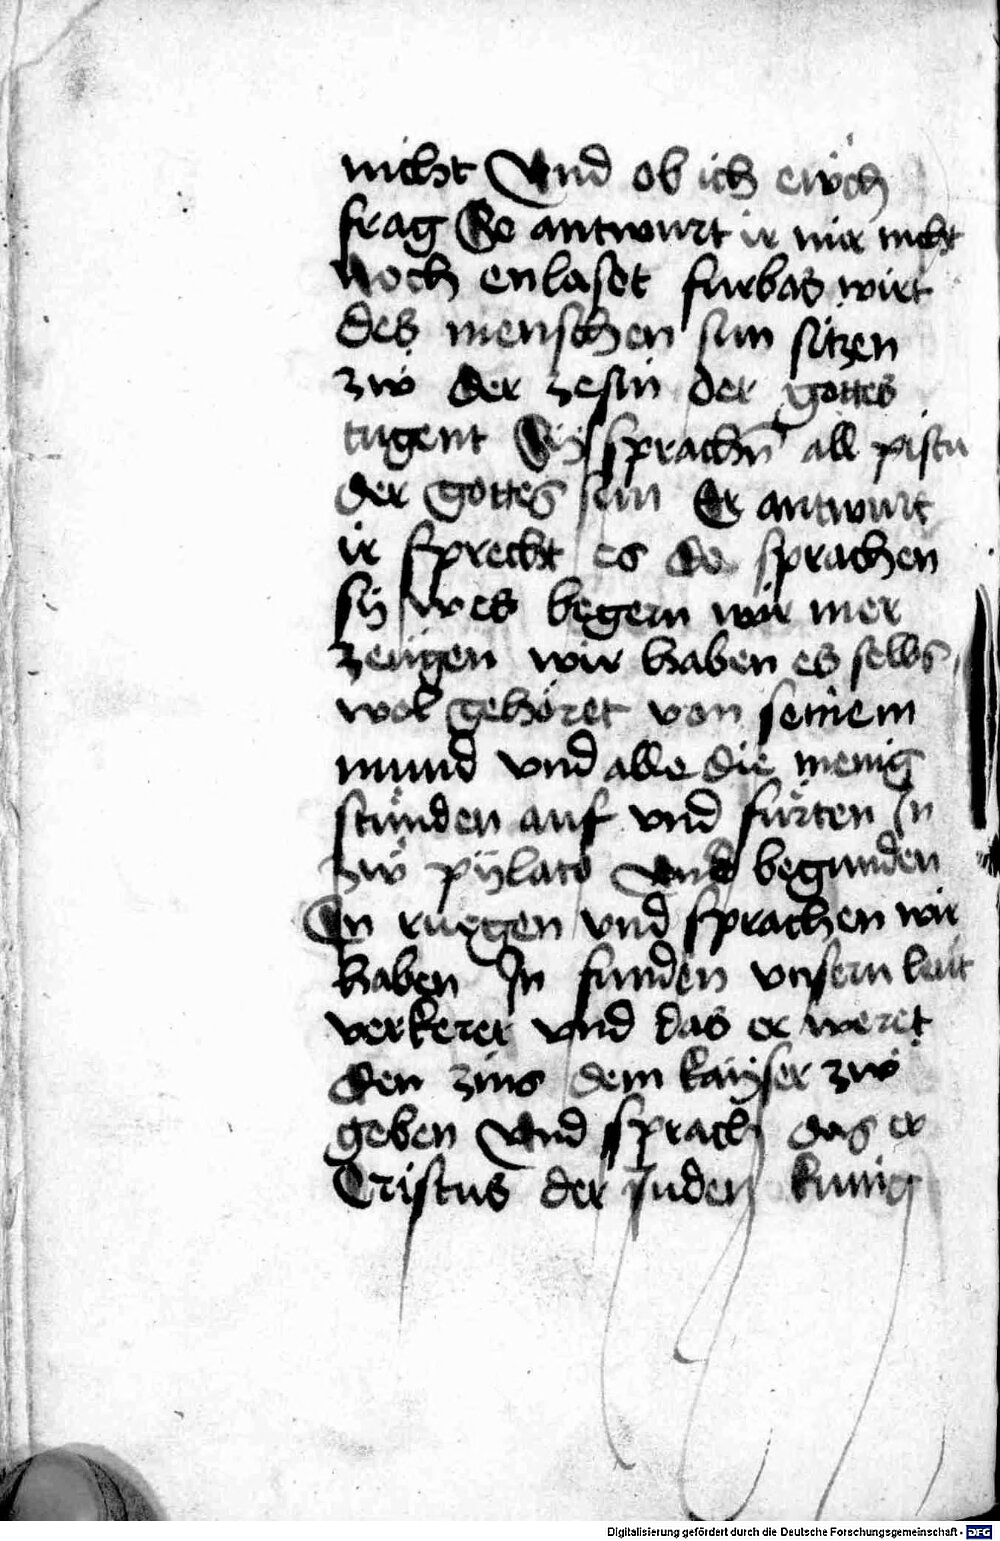 nicht Vnd ob ich ewch
frag So antwurt ir mir nicht
noch enlaset furbas wirt
des menschen sun sitzen
zw̎ der zesm̃ der gottes
tugent Sy sprachn̄ all pistu
der gottes sun Er antwurt
ir sprecht es do sprachen
sÿ wes begern wir mer
zeugen wir haben es selbs
wol gehöret von seinem
mund vnd alle die menig
stunden auf vnd fürten In
zw̎ pÿlato vnd begunden
In rugen vnd sprachen wir
haben In funden vnsern leüt
verkerer vnd das er weret
den zins dem kaÿser zw̎
geben Vnd sprach das er
Cristus der Juden kunig
Digitalisierung gefördert durch die Deutsche Forschungsgemeinschaft - DFG